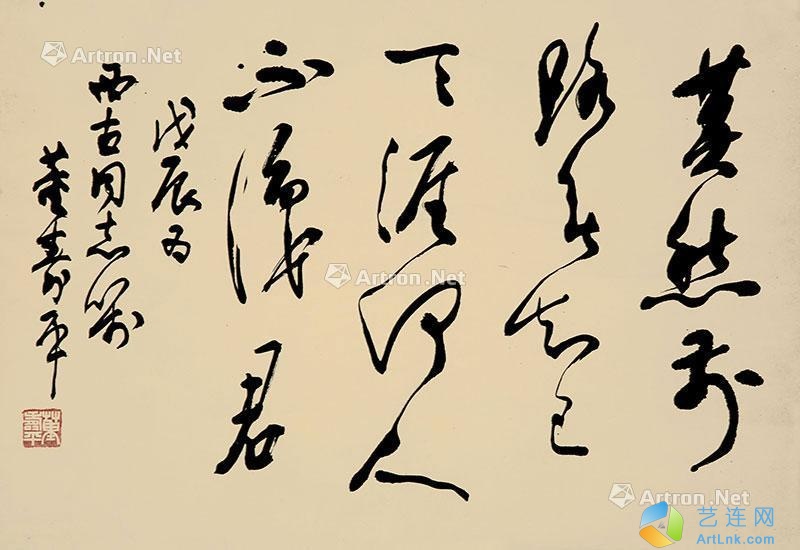 莫愁前
路无知己
天涯何人
不识君
戊辰为
西古同志嘱
董寿平
Artron.Net
Artron.Net
Artron.Net
Artron.Net
艺连网
ArtLnk.com